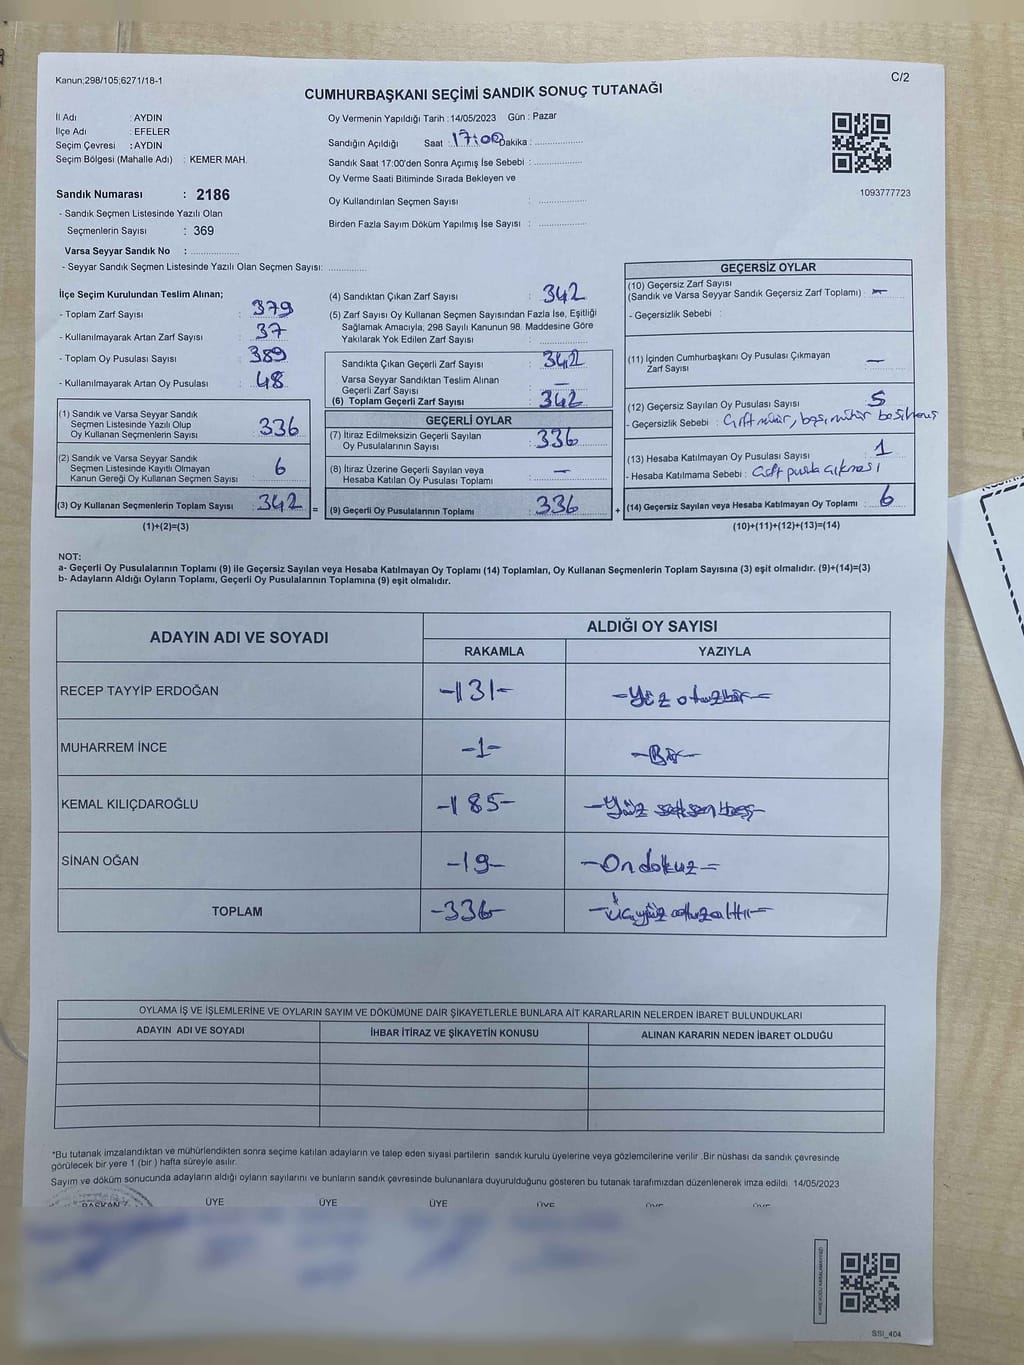 Kanun;298/105;6271/18-1
C/2
CUMHURBAŞKANI SEÇİMİ SANDIK SONUÇ TUTANAĞI
İl Adı : AYDIN
İlçe Adı : EFELER
Seçim Çevresi : AYDIN
Seçim Bölgesi (Mahalle Adı) : KEMER MAH.
Sandık Numarası : 2186
- Sandık Seçmen Listesinde Yazılı Olan
Seçmenlerin Sayısı : 369
Varsa Seyyar Sandık No : ....................
- Seyyar Sandık Seçmen Listesinde Yazılı Olan Seçmen Sayısı: ...............
Oy Vermenin Yapıldığı Tarih : 14/05/2023 Gün : Pazar
Sandığın Açıldığı Saat : 17:00 Dakika : ...............
Sandık Saat 17:00'den Sonra Açımış İse Sebebi : ...............
Oy Verme Saati Bitiminde Sırada Bekleyen ve
Oy Kullandırılan Seçmen Sayısı : ...............
Birden Fazla Sayım Döküm Yapılmış İse Sayısı : ...............
1093777723
İlçe Seçim Kurulundan Teslim Alınan;
- Toplam Zarf Sayısı : 379
- Kullanılmayarak Artan Zarf Sayısı : 37
- Toplam Oy Pusulası Sayısı : 389
- Kullanılmayarak Artan Oy Pusulası : 48
(1) Sandık ve Varsa Seyyar Sandık
Seçmen Listesinde Yazılı Olup
Oy Kullanan Seçmenlerin Sayısı : 336
(2) Sandık ve Varsa Seyyar Sandık
Seçmen Listesinde Kayıtlı Olmayan
Kanun Gereği Oy Kullanan Seçmen Sayısı : 6
(3) Oy Kullanan Seçmenlerin Toplam Sayısı : 342 =
(1)+(2)=(3)
(4) Sandıktan Çıkan Zarf Sayısı : 342
(5) Zarf Sayısı Oy Kullanan Seçmen Sayısından Fazla İse, Eşitliği
Sağlamak Amacıyla, 298 Sayılı Kanunun 98. Maddesine Göre
Yakılarak Yok Edilen Zarf Sayısı : ...............
Sandıkta Çıkan Geçerli Zarf Sayısı : 342
Varsa Seyyar Sandıktan Teslim Alınan
Geçerli Zarf Sayısı : —
(6) Toplam Geçerli Zarf Sayısı : 342
GEÇERLİ OYLAR
(7) İtiraz Edilmeksizin Geçerli Sayılan
Oy Pusulasının Sayısı : 336
(8) İtiraz Üzerine Geçerli Sayılan veya
Hesaba Katılan Oy Pusulası Toplamı : —
(9) Geçerli Oy Pusulalarının Toplamı : 336 +
GEÇERSİZ OYLAR
(10) Geçersiz Zarf Sayısı
(Sandık ve Varsa Seyyar Sandık Geçersiz Zarf Toplamı) : —
- Geçersizlik Sebebi :
(11) İçinden Cumhurbaşkanı Oy Pusulası Çıkmayan
Zarf Sayısı : —
(12) Geçersiz Sayılan Oy Pusulası Sayısı : 5
- Geçersizlik Sebebi : Çift mühür,
(13) Hesaba Katılmayan Oy Pusulası Sayısı : 1
- Hesaba Katılmama Sebebi : Çift pusula çıkması
(14) Geçersiz Sayılan veya Hesaba Katılmayan Oy Toplamı : 6
(10)+(11)+(12)+(13)=(14)
NOT:
a- Geçerli Oy Pusulalarının Toplamı (9) ile Geçersiz Sayılan veya Hesaba Katılmayan Oy Toplamı (14) Toplamları, Oy Kullanan Seçmenlerin Toplam Sayısına (3) eşit olmalıdır. (9)+(14)=(3)
b- Adayların Aldığı Oyların Toplamı, Geçerli Oy Pusulalarının Toplamına (9) eşit olmalıdır.
ADAYIN ADI VE SOYADI
ALDIĞI OY SAYISI
RAKAMLA YAZIYLA
RECEP TAYYİP ERDOĞAN -131- -Yüz otuzbir-
MUHARREM İNCE -1- -Bir-
KEMAL KILIÇDAROĞLU -185- -Yüz seksen beş-
SİNAN OĞAN -19- -On dokuz-
TOPLAM -336- -Üçyüz otuzaltı-
OYLAMA İŞ VE İŞLEMLERİNE VE OYLARIN SAYIM VE DÖKÜMÜNE DAİR ŞİKAYETLERLE BUNLARA AİT KARARLARIN NELERDEN İBARET BULUNDUKLARI
ADAYIN ADI VE SOYADI İHBAR İTİRAZ VE ŞİKAYETİN KONUSU ALINAN KARARIN NEDEN İBARET OLDUĞU
*Bu tutanak imzalandıktan ve mühürlendikten sonra seçime katılan adayların ve talep eden siyasi partilerin sandık kurulu üyelerine veya gözlemcilerine verilir .Bir nüshası da sandık çevresinde
görülecek bir yere 1 (bir ) hafta süreyle asılır.
Sayım ve döküm sonucunda adayların aldığı oyların sayılarını ve bunların sandık çevresinde bulunanlara duyurulduğunu gösteren bu tutanak tarafımızdan düzenlenerek imza edildi. 14/05/2023
BAŞKAN ÜYE ÜYE ÜYE ÜYE ÜYE ÜYE
SSI_404